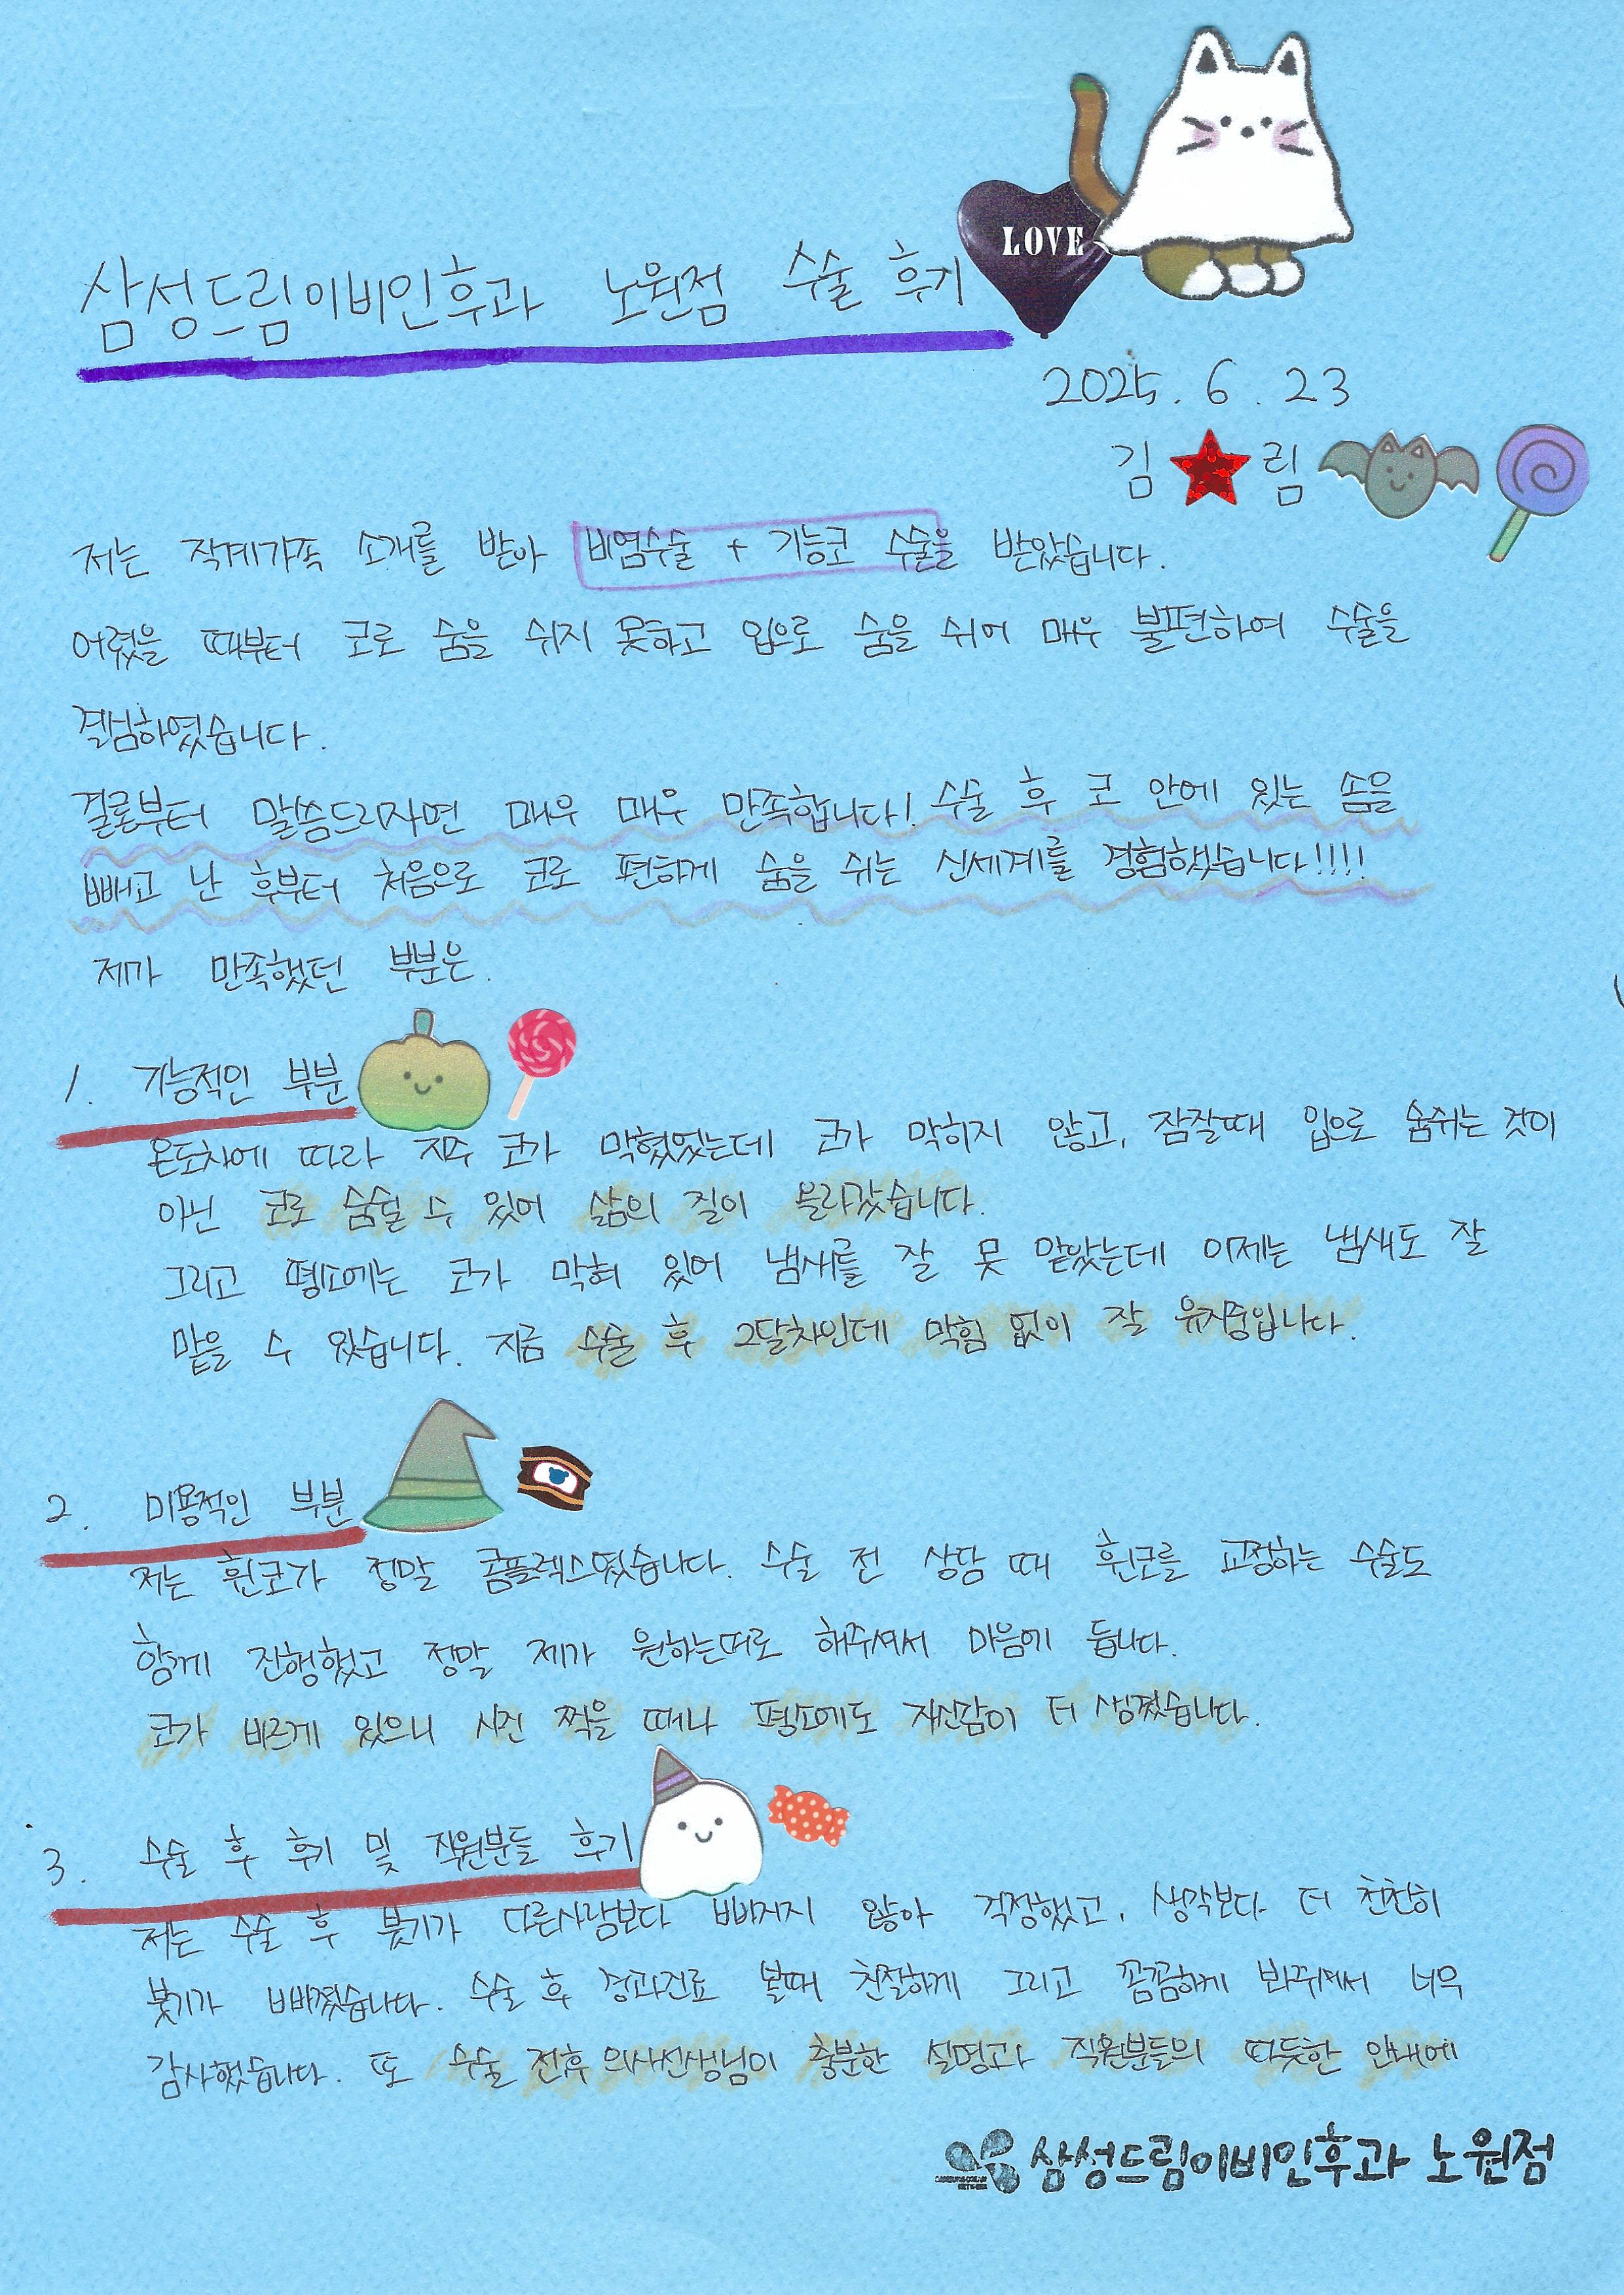 삼성드림이비인후과 노원점 수술 후기
LOVE
2025. 6. 23
김★림
저는 직계가족 소개를 받아 비염수술 + 기능코 수술을 받았습니다.
어렸을 때부터 코로 숨을 쉬지 못하고 입으로 숨을 쉬어 매우 불편하여 수술을
결심하였습니다.
결론부터 말씀드리자면 매우 매우 만족합니다! 수술 후 코 안에 있는 솜을
빼고 난 후부터 처음으로 코로 편하게 숨을 쉬는 신세계를 경험했습니다!!!!
제가 만족했던 부분은.
1. 기능적인 부분
온도차에 따라 자주 코가 막혔었는데 코가 막히지 않고, 잠잘때 입으로 숨쉬는 것이
아닌 코로 숨쉴 수 있어 삶의 질이 올라갔습니다.
그리고 평소에는 코가 막혀 있어 냄새를 잘 못 맡았는데 이제는 냄새도 잘
맡을 수 있습니다. 지금 수술 후 2달차인데 막힘 없이 잘 유지중입니다.
2. 미용적인 부분
저는 휜코가 정말 콤플렉스였습니다. 수술 전 상담 때 휜코를 교정하는 수술도
함께 진행했고 정말 제가 원하는대로 해주셔서 마음에 듭니다.
코가 바르게 있으니 사진 찍을 때나 평소에도 자신감이 더 생겼습니다.
3. 수술 후 후기 및 직원분들 후기
저는 수술 후 붓기가 다른사람보다 빠지지 않아 걱정했고, 생각보다 더 천천히
붓기가 빠졌습니다. 수술 후 경과진료 볼때 친절하게 그리고 꼼꼼하게 봐주셔서 너무
감사했습니다. 또 수술 전후 의사선생님이 충분한 설명과 직원분들의 따듯한 안내에
삼성드림이비인후과 노원점